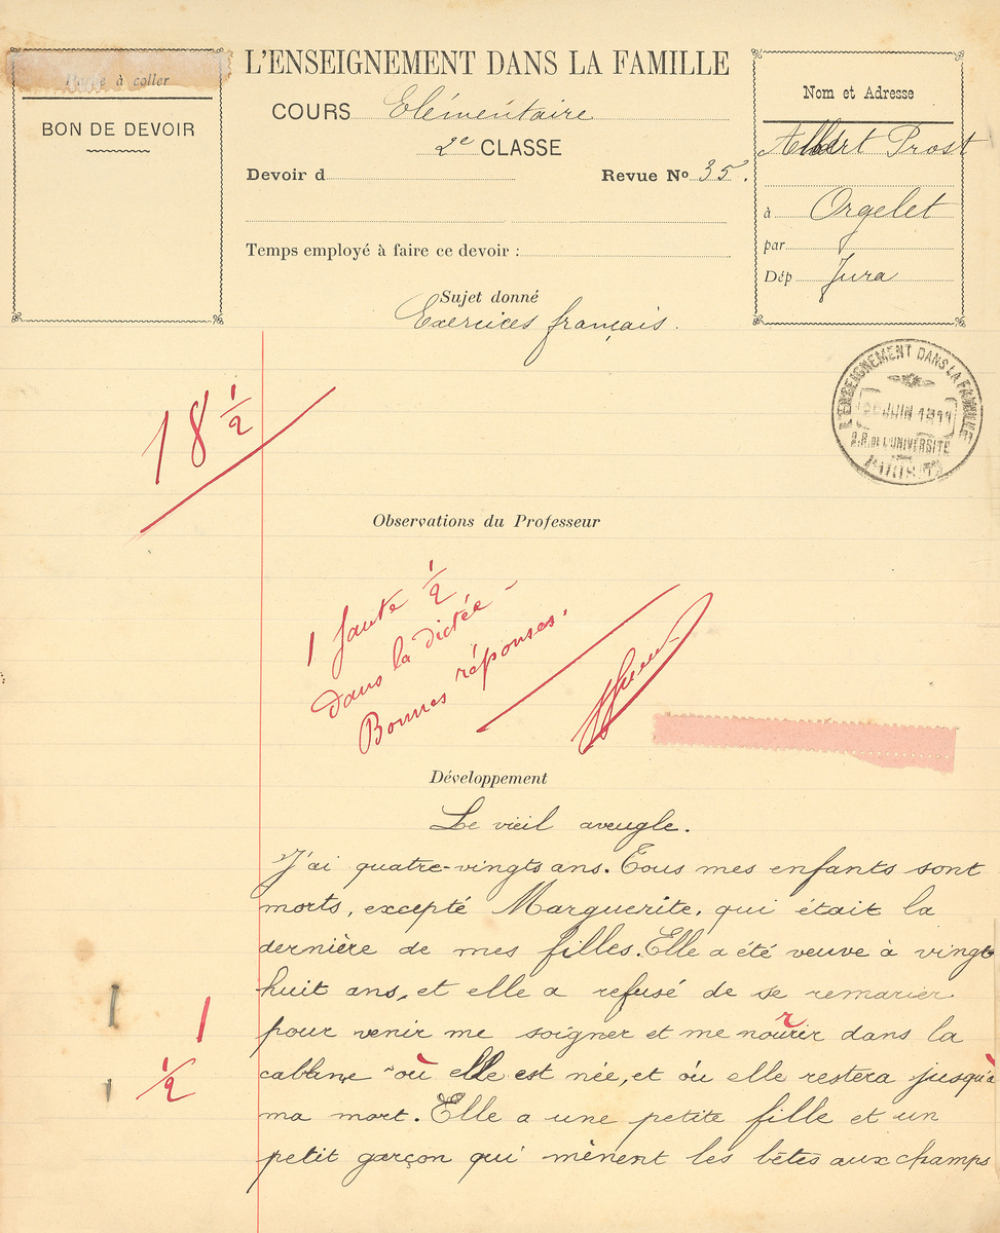 L'ENSEIGNEMENT DANS LA FAMILLE
à coller
BON DE DEVOIR
COURS Elémentaire
2e CLASSE
Devoir d
Revue No 35.
Temps employé à faire ce devoir :
Nom et Adresse
Albert Prost
à Orgelet
par
Dép Jura
Sujet donné
Exercices français.
L'ENSEIGNEMENT DANS LA FAMILLE
JUIN 1911
B.R. DE L'UNIVERSITÉ
PARIS
18 1/2
Observations du Professeur
1 faute 1/2
dans la dictée -
Bonnes réponses.
Développement
Le vieil aveugle.
J'ai quatre-vingts ans. Tous mes enfants sont
morts, excepté Marguerite, qui était la
dernière de mes filles. Elle a été veuve à vingt
huit ans, et elle a refusé de se remarier
r
1 pour venir me soigner et me nourir dans la
1/2 cabane où elle est née, et où elle restera jusqu'à
ma mort. Elle a une petite fille et un
petit garçon qui mènent les bêtes aux champs